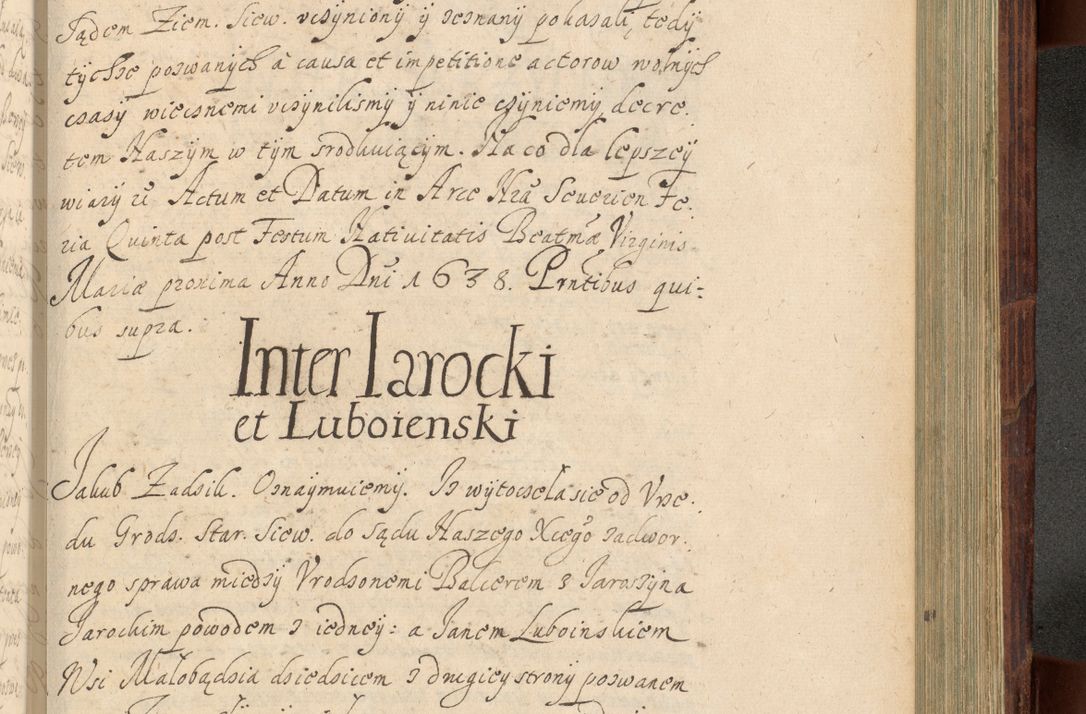 sądem Ziem. Siew. vczÿnionÿ ÿ zeznanÿ pokazalÿ, tedÿ
tÿchze pozwanÿch à causa et impetitione actorow wolnÿch
czasÿ wiecznemi vczÿnilismÿ ÿ ninie czÿniemÿ decre.
tem Naszÿm w tÿm srodkuiącÿm. Na co dla lepszeÿ
wiarÿ etc Actum et Datum in Arce Nrã Seuerien Fe.
ria Quinta post Festum Natiuitatis Beatmæ Virginis
Mariæ proxima Anno Dni 1638. Prntibus qui=
bus supra.
Inter Iarocki
et Luboienski
Jakub Zadzik. Oznaÿmuiemÿ. Iz wÿtoczeła sie od Vrze.
du Grodz. Star. Siew. do sądu Naszego Xcego zadwor.
nego sprawa miedzÿ Vrodzonemi Balcerem z Jaroszÿna
Jarockim powodem z iedneÿ: a Janem Luboinskiem
Wsi Małobądzia dziedzicem z drugieÿ stronÿ pozwanem